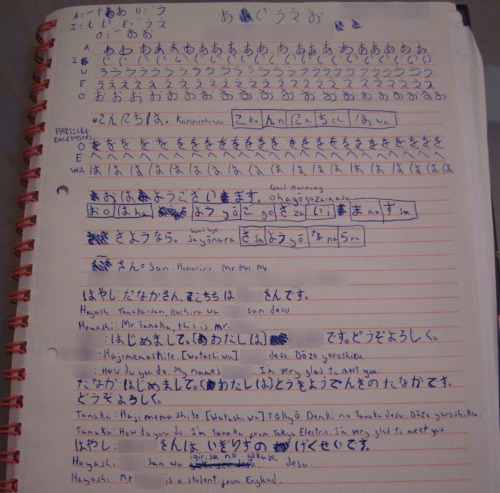 A = あ U = う
I = い E = え
O = お
あ い う え お
A あ あ あ あ あ あ あ あ あ あ あ あ あ あ あ あ あ
I い い い い い い い い い い い い い い い い い
U う う う う う う う う う う う う う う う う う
E え え え え え え え え え え え え え え え え え
O お お お お お お お お お お お お お お お お お
こんにちは。 Konnichiwa こko んn にni ちchi はwa
PARTICLE EXCEPTIONS
O を を を を を を を を を を を を を を を を を
E へ へ へ へ へ へ へ へ へ へ へ へ へ へ へ へ
WA は は は は は は は は は は は は は は は は は
おはようございます。 Good morning ohayōgozaimasu
おo はha ようyō ごgo ざza いi まma すsu
さようなら。 Good bye Sayōnara さsa ようyō なna らra
さん = San. Honorific Mr Mrs Mr.
はやし: たなかさん、こちらは さんです。
Hayashi: Tanaka-san, kochira wa san desu
Hayashi: Mr. Tanaka, this is Mr.
: はじめまして。(わたしは) です。どうぞよろしく。
: Hajimemashite. [Watashi wa] desu. Dōzo yoroshiku.
: How do you do. My names . I'm very glad to meet you.
たなか: はじめまして。(わたしは)とうきょうでんきの たなかです。
どうぞよろしく。
Tanaka: Hajimemashite [Watashi wa] Tōkyō Denki no Tanaka desu. Dōzo yoroshiku.
Tanaka: How do you do. I'm Tanaka from Tokyo Electric. I'm very glad to meet you
はやし: さんは いぎりすの がくせいです。
Hayashi: san wa igirisu no gakusei desu.
Hayashi: Mr is a student from England.